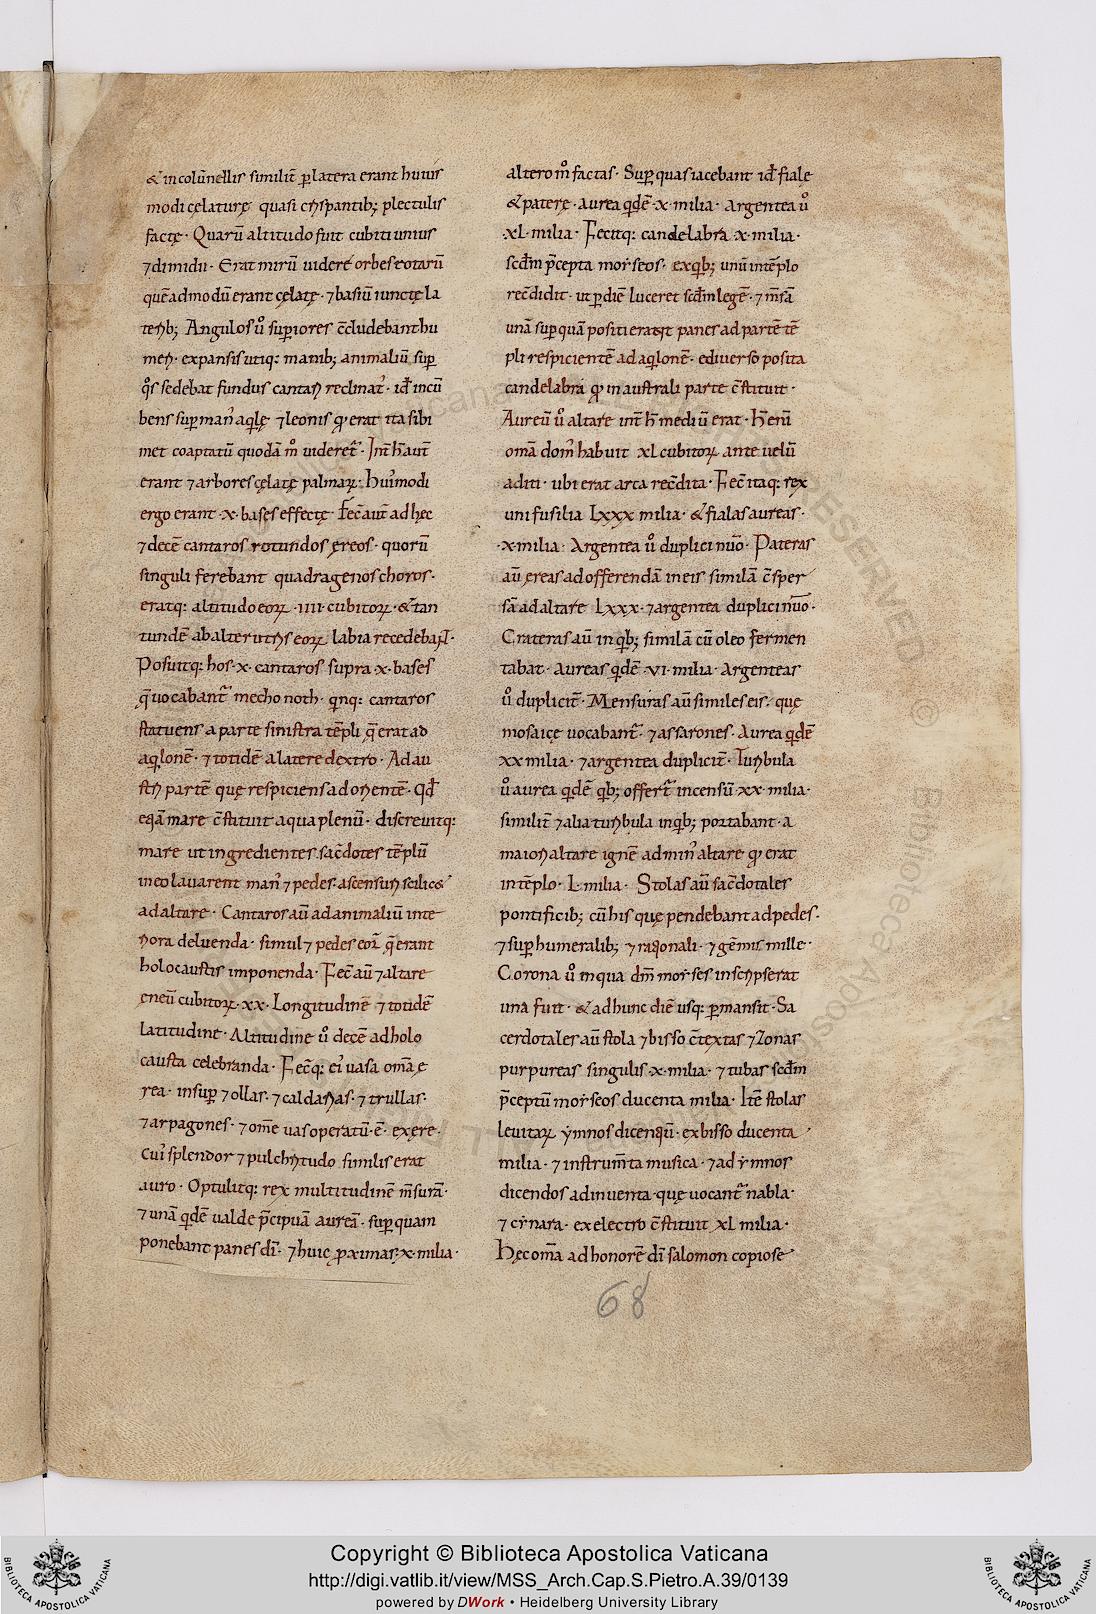 & incolūnellis similit̄ ꝑlatera erant huius
modi cęlaturę quasi crispantib; plectulis
factę · Quarū altitudo fuit cubiti unius
⁊dimidii · Erat mirū uidere orbes rotarū
quēadmodū erant cęlatę · ⁊basiū iunctę la
terib; Angulos ů suꝑiores c̄cludebant hu
meri · expansis utiq: manib; animaliū suꝑ
q̊s sedebat fundus cantari reclinat᷒ · id̄ incū
bens suꝑ man᷒ aqͥlę ⁊leonis qͥ erat ita sibi
met coaptatū quodā m̊ uideret᷑ · Int̄ h̄ aut̄
erant ⁊arbores cęlatę palmaꝝ · hui᷒modi
ergo erant ·x· bases effectę · Fec̄ aut̄ ad hęc
⁊decē cantaros rotundos ęreos · quorū
singuli ferebant quadragenos choros ·
eratq: altitudo eoꝝ ·IIII· cubitoꝝ · & tan
tundē ab alterutris eoꝝ labia recedebant ·
Posuitq: hos ·x· cantaros supra ·x· bases
q̄ uocabant᷑ mechonoth · qͥnq: cantaros
statuens a parte sinistra tēpli q̄ erat ad
aqͥlonē · ⁊ totidē a latere dextro · Ad au
stri partē quę respiciens ad orientē · Qd̄
eqͣā mare c̄stituit aqua plenū · discreuitq:
mare ut ingredientes sac̄dotes tēplū
in eo lauarent man᷒ ⁊ pedes · ascensuri scilic&
ad altare · Cantaros aū ad animaliū inte
riora deluenda · simul ⁊ pedes eoꝝ q̄ erant
holocaustis imponenda · Fec̄ aū ⁊altare
ęneū cubitoꝝ · xx · Longitudinē ⁊ totidē
latitudine · Altitudine ů decē ad holo
causta celebranda · Fec̄q: ei᷒ uasa om̄a ę
rea · insuꝑ ⁊ollas · ⁊ caldarias · ⁊ trullas ·
⁊arpagones · ⁊ om̄e uas operatū · ē · ex ęre ·
Cui᷒ splendor ⁊ pulchritudo similis erat
auro · Optulitq: rex multitudinē m̄surā ·
⁊unā qͥdē ualde p̄cipuā aureā · suꝑ quam
ponebant panes dī · ⁊huic ꝓximas · x · milia ·
altero m̊ factas · Suꝑ quas iacebant id̄ fialę
& paterę · aurea qͥdē · x · milia · argentea ů
· XL · milia · Fecitq: candelabra · x · milia ·
scd̄m p̄cepta moẏseos · ex qͥb; unū in tēplo
rec̄didit · ut ꝑ diē luceret scd̄m legē · ⁊ m̄sā
unā suꝑ quā positi erant panes ad partē tē
pli respicientē ad aqͥlonē · e diuerso posita
candelabra qͥ in australi parte c̄stituit ·
Aureū ů altare int̄ h̄ mediū erat · h̄ enī
om̄a dom᷒ habuit XL cubitoꝝ ante uelū
aditi · ubi erat arca rec̄dita · Fec̄ itaq: rex
uni fusilia LXXX milia · & fialas aureas ·
·x· milia · Argentea ů duplici nūo · Pateras
aū ęreas ad offerendā in eis similā c̄sper
sā ad altare LXXX · ⁊argentea duplici nūo ·
Crateras aū in qͥb; similā cū oleo fermen
tabat · aureas qͥdē · VI · milia · argenteas
ů duplicit̄ · Mensuras aū similes eis · quę
mosaicę uocabant᷑ · ⁊ assarones · Aurea qͥdē
XX milia · ⁊argentea duplicit̄ · Turibula
ů aurea qͥdē qͥb; offert᷑ incensū · XX · milia ·
similit̄ ⁊ alia turibula in qͥb; portabant · a
maiori altare ignē ad min᷒ altare qͥ erat
in tēplo · L · milia · Stolas aū sac̄dotales
pontificib; cū his quę pendebant ad pedes ·
⁊ suꝑ humeralib; ⁊ rationali · ⁊ gēmis mille ·
Corona ů in qua dm̄ moẏses inscripserat
una fuit · & ad hunc diē usq: ꝑmansit · Sa
cerdotales aū stola ⁊bisso c̄textas ⁊Zonas
purpureas singulis · x · milia · ⁊ tubas scd̄m
p̄ceptū moẏseos ducenta milia · Itē stolas
leuitaꝝ ẏmnos dicentiū · ex bisso ducenta
milia · ⁊ instrum̄ta musica · ⁊ ad ẏmnos
dicendos adinuenta · quę uocant᷑ nabla ·
⁊ cẏnara · ex electro c̄stituit XL milia ·
hęc om̄a ad honorē dī salomon copiose
68
Copyright © Biblioteca Apostolica Vaticana
http://digi.vatlib.it/view/MSS_Arch.Cap.S.Pietro.A.39/0139
powered by DWork • Heidelberg University Library
BIBLIOTECA APOSTOLICA VATICANA
BIBLIOTECA APOSTOLICA VATICANA